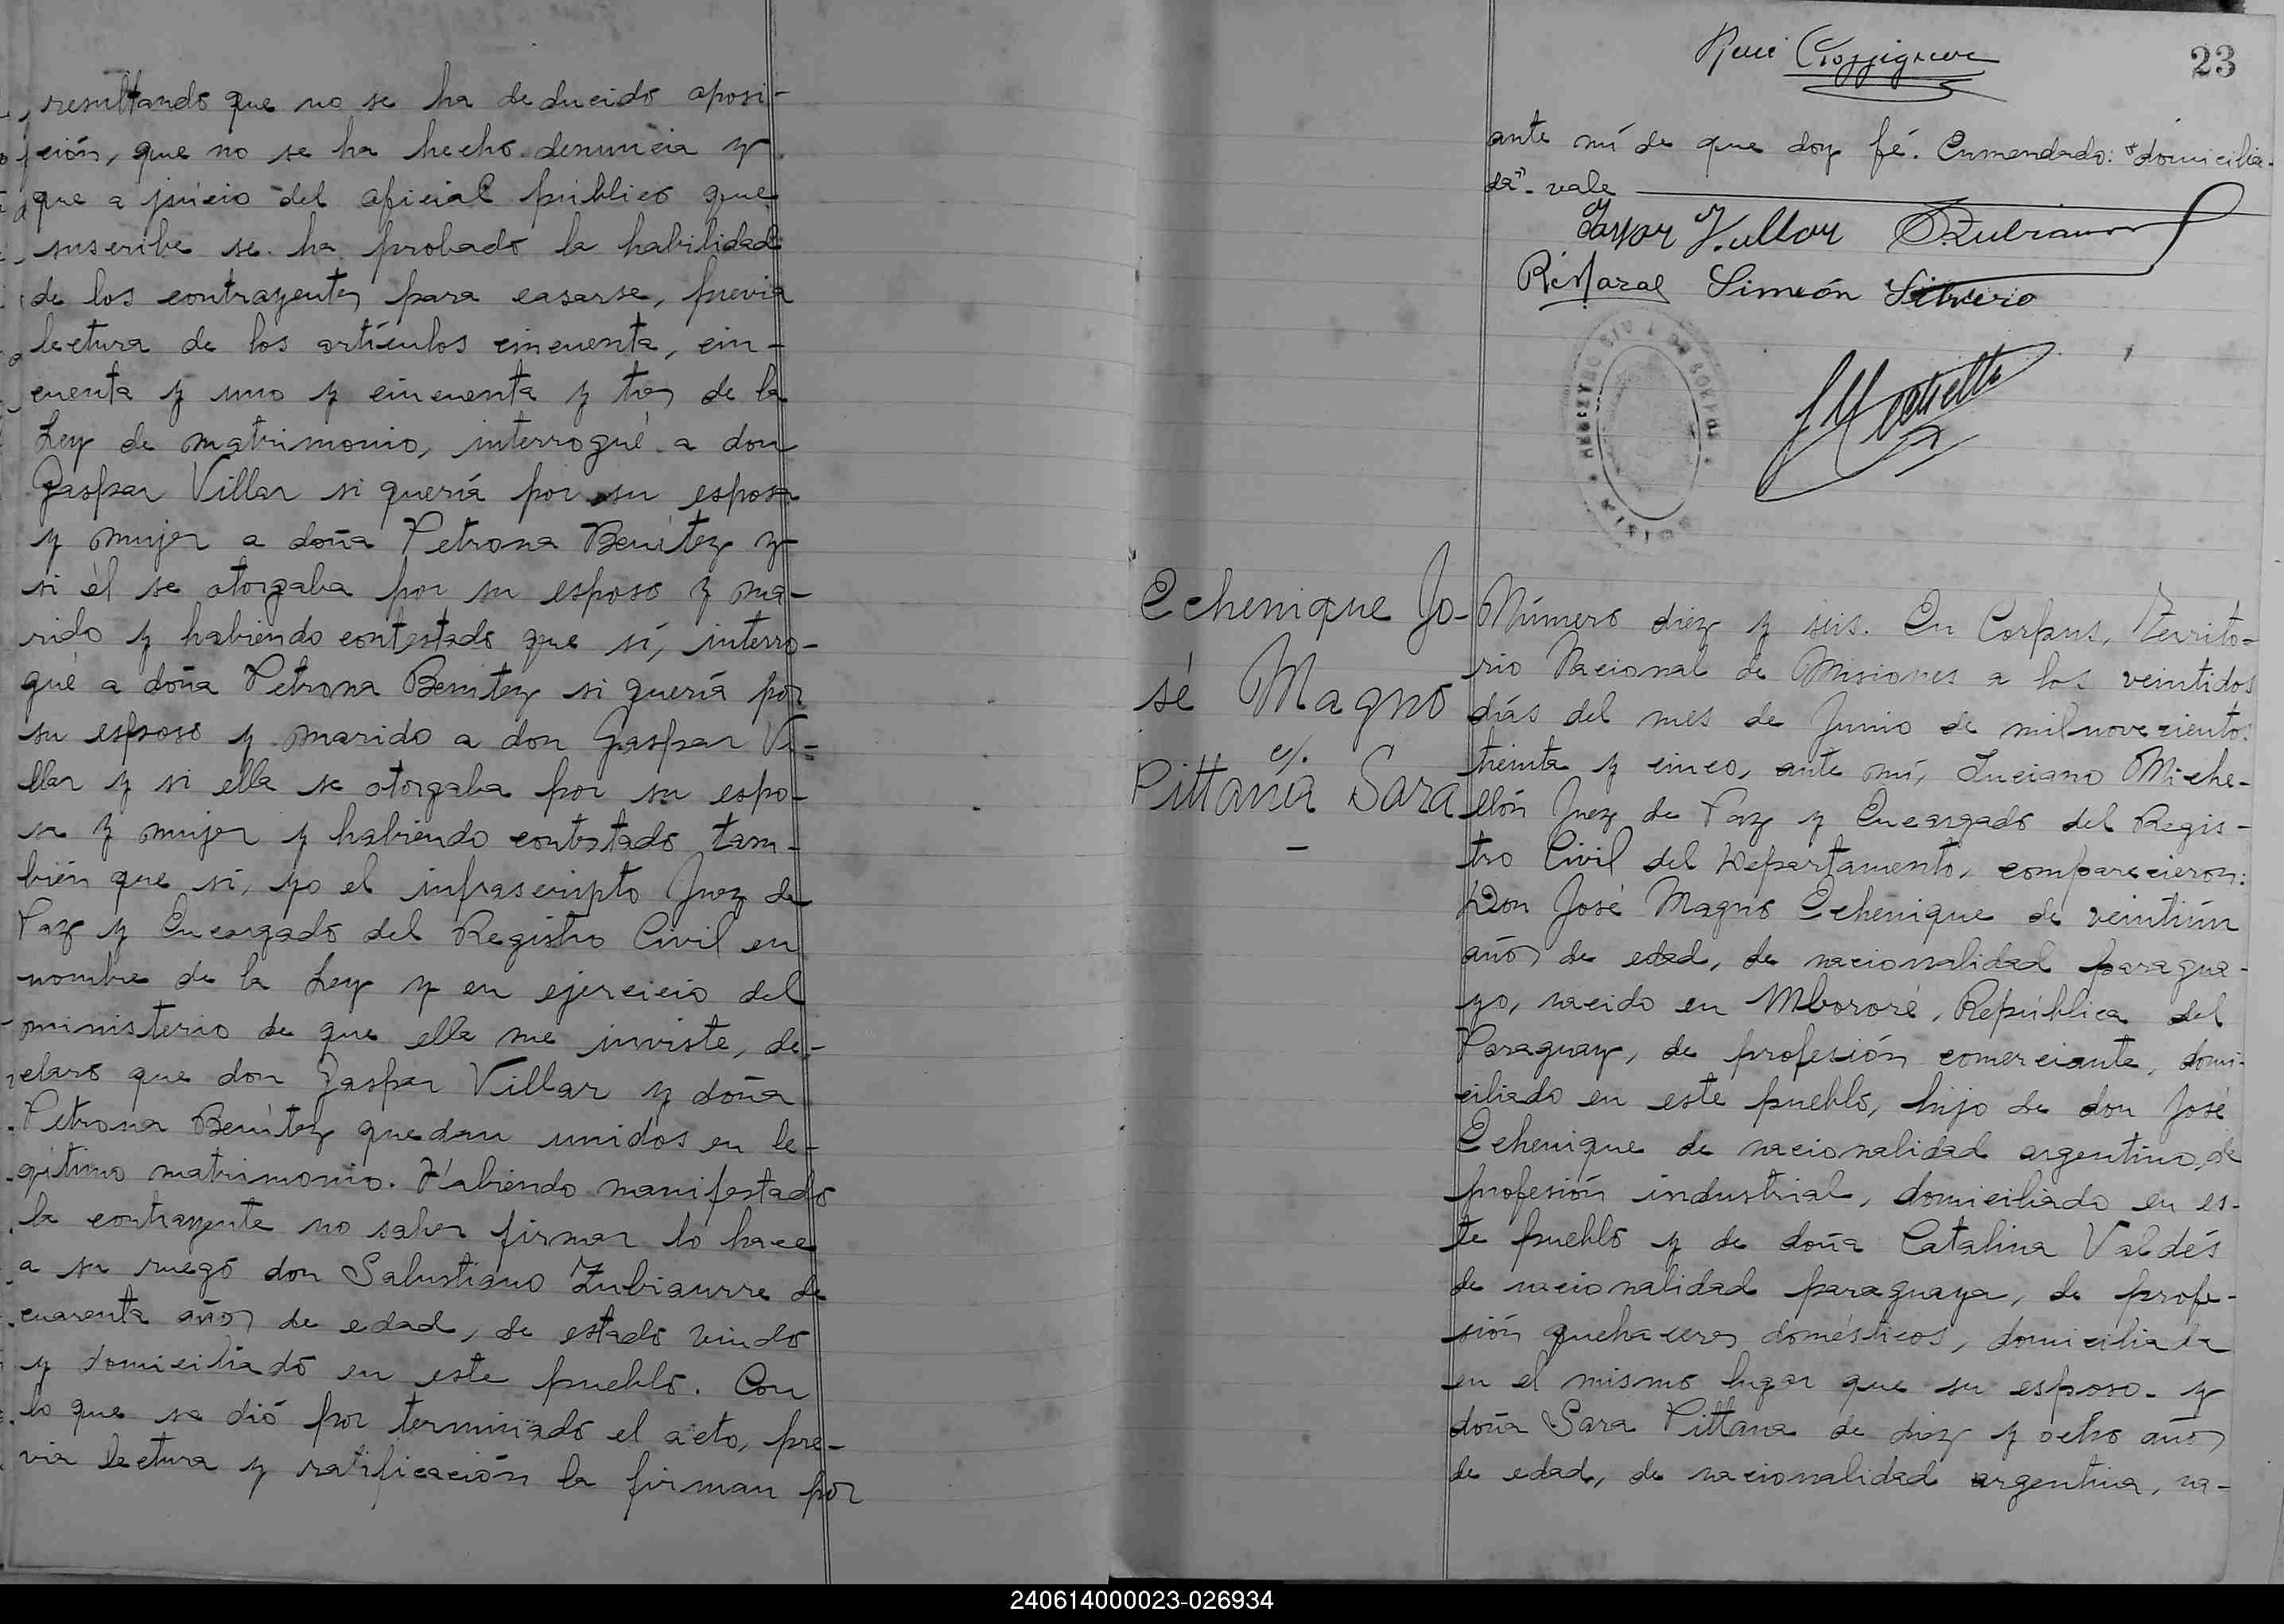 resultando que no se ha deducido oposi-
ción, que no se ha hecho denuncia y
que a juicio del oficial público que
suscribe se ha probado la habilidad
de los contrayentes para casarse, previa
lectura de los artículos cincuenta, cin-
cuenta y uno y cincuenta y tres de la
Ley de matrimonio, interrogué a don
Gaspar Villar si quería por su esposa
y mujer a doña Petrona Benítez y
si él se otorgaba por su esposo y ma-
rido y habiendo contestado que sí, interro-
gué a doña Petrona Benitez si quería por
su esposo y marido a don Gaspar Vi-
llar y si ella se otorgaba por su espo-
sa y mujer y habiendo contestado tam-
bién que sí, yo el infrascripto Juez de
Paz y Encargado del Registro Civil en
nombre de la Ley y en ejercicio del
ministerio de que ella me inviste, de-
claro que don Gaspar Villar y doña
Petrona Benítez quedan unidos en le-
gítimo matrimonio. Habiendo manifestado
la contrayente no saber firmar lo hace
a su ruego don Salustiano Zubiaurre de
cuarenta años de edad, de estado viudo
y domiciliado en este pueblo. Con
lo que se dió por terminado el acto, pre-
via lectura y ratificación la firman por
23
ante mí de que doy fé. Enmendado: "domicilia-
da"- vale
Gaspar Villar
Simeón
REGISTRO CIVIL DE CORPUS
Echenique Jo-
sé Magno
c/.
Pittana Sara
Número diez y seis. En Corpus, Territo-
rio Nacional de Misiones a los veintidos
días del mes de Junio de mil novecientos
treinta y cinco, ante mí, Luciano Miche-
llón Juez de Paz y Encargado del Regis-
tro Civil del Departamento, comparecieron:
Don José Magno Echenique de veintiún
años de edad, de nacionalidad paragua-
yo, nacido en Mbororé, República del
Paraguay, de profesión comerciante, domi-
ciliado en este pueblo, hijo de don José
Echenique de nacionalidad argentino, de
profesión industrial, domiciliado en es-
te pueblo y de doña Catalina Valdés
de nacionalidad paraguaya, de profe-
sión quehaceres domésticos, domiciliada
en el mismo lugar que su esposo. y
doña Sara Pittana de diez y ocho años
de edad, de nacionalidad argentina, na-
240614000023-026934